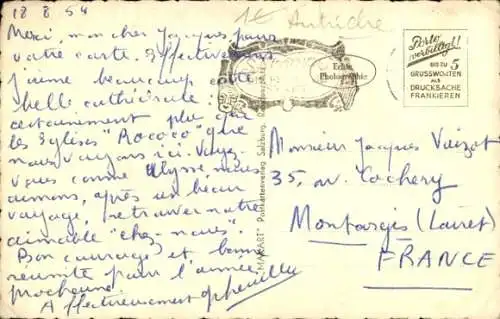 18 8 54
Merci, mon cher Jacques pour
votre carte. Effectivement
j'aime beaucoup cette
belle cathédrale:
certainement plus que
les églises "Rococo" que
nous voyons ici. Voyez-
vous comme Ulysse, nous
aimons, après un beau
voyage, retrouver notre
aimable "chez-nous".
Bon courage et bonne
réussite pour l'année
prochaine.
Affectueusement
1€ Autriche
Echte
Photographie
Porto
verbilligt!
BIS ZU 5
GRUSSWORTEN
ALS
DRUCKSACHE
FRANKIEREN
"MAKART" Postkartenverlag Salzburg,
Monsieur Jacques Voizot
35, av. Cochery
Montargis (Loiret)
FRANCE